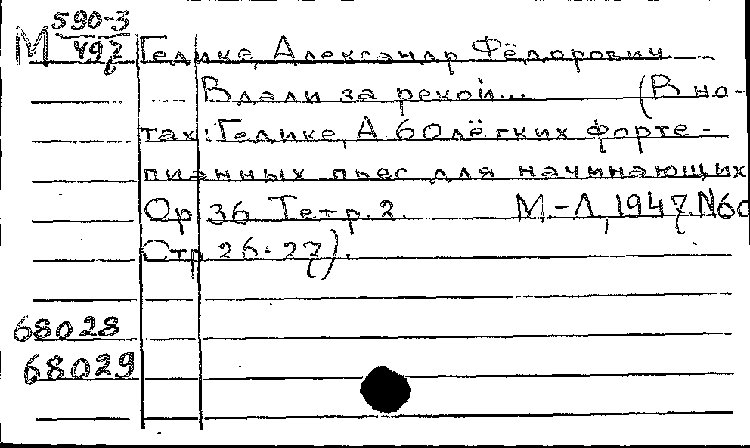 М 590-3
497 Гедике, Александр Фёдорович
Вдали за рекой... (В но-
тах: Гедике, А 60 лёгких форте-
пианных пьес для начинающих
Ор 36 Тетр. 2. М.-Л, 1947. N60
Стр 26-27).
68028
68029